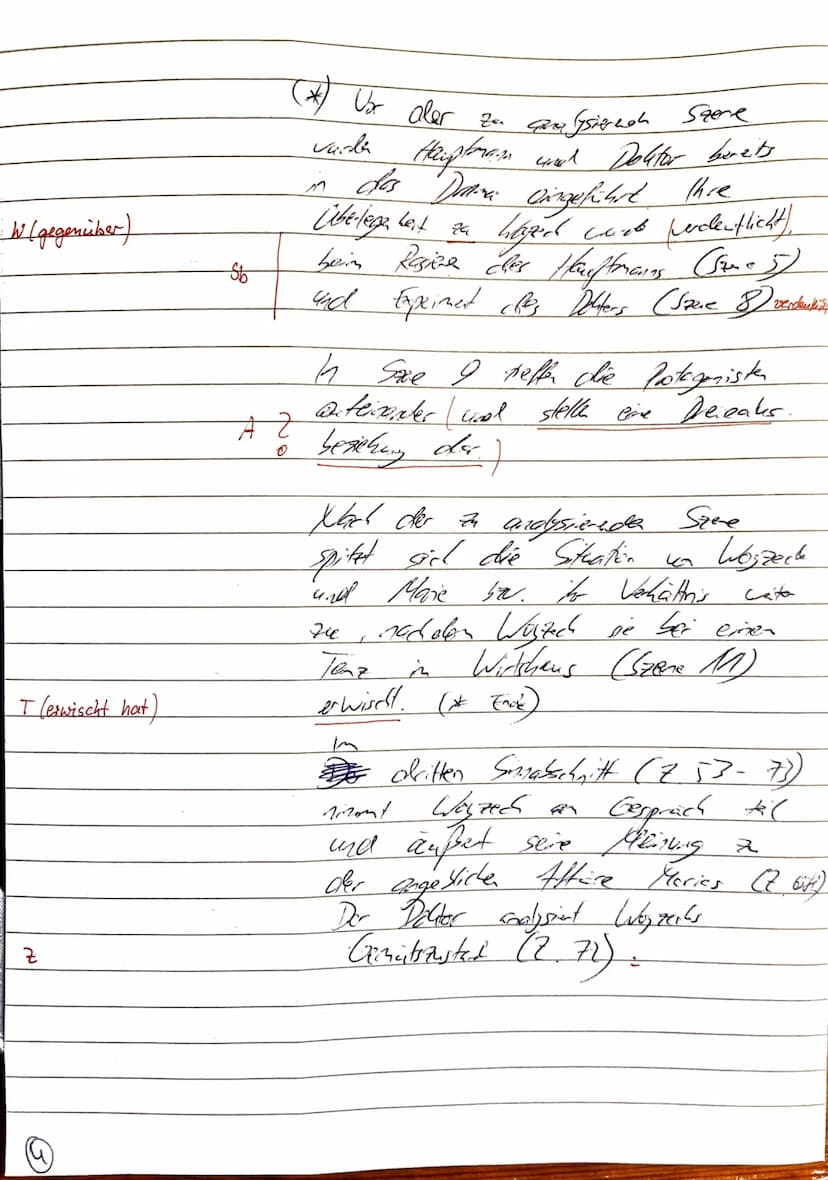 (*) Vor der zu analysierenden Szene
wurden Hauptmann und Doktor bereits
in das Drama eingeführt Ihre
W (gegenüber)
Überlegenheit zu Woyzeck wird (verdeutlicht),
Sb
beim Rasieren des Hauptmanns (Szene 5)
und Experiment des Doktors (Szene 8) verdeutlicht
In Szene 9 treffen die Protagonisten
aufeinander (und stellen eine
A ?
beziehung dar.)
Nach der zu analysierenden Szene
spitzt sich die Situation von Woyzeck
und Marie bzw. ihr Verhältnis weiter
zu, nachdem Woyzeck sie bei einen
Tanz im Wirtshaus (Szene 11)
T (erwischt hat)
erwischt. (* Ende)
Im
dritten Sinnabschnitt (Z 53 - 73)
nimmt Woyzeck am Gespräch teil
und äußert seine Meinung zu
der angeblichen Affäre Maries
Der Doktor analysiert Woyzecks
Z
Gemütszustand (Z. 72).
4